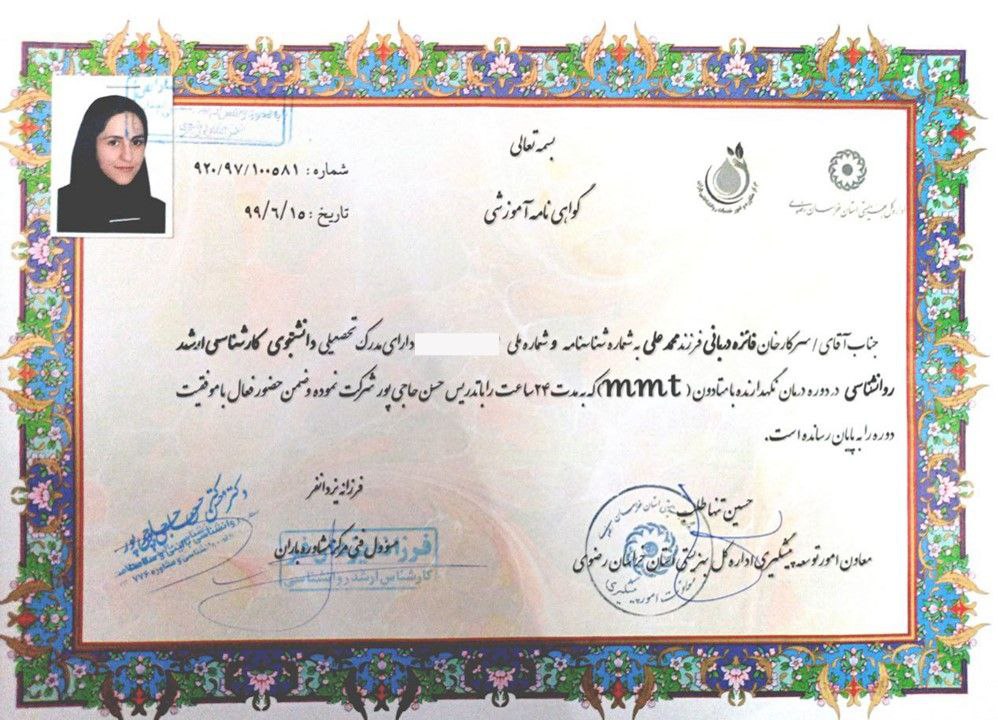 بسمه تعالی
گواهی نامه آموزشی
شماره: ۹۲۰/۹۷/۱۰۰۵۸۱
تاریخ: ۹۹/۶/۱۵
اداره کل بهزیستی استان خراسان رضوی
جناب آقای / سرکار خانم فائزه دربانی فرزند محمد علی به شماره شناسنامه و شماره ملی دارای مدرک تحصیلی دانشجوی کارشناسی ارشد
روانشناسی در دوره درمان نگهدارنده با متادون (mmt) که به مدت ۲۴ ساعت را با تدریس حسن حاجی پور شرکت نموده و ضمن حضور فعال با موفقیت
دوره را به پایان رسانده است.
حسین تنها طلب
معاون امور توسعه پیشگیری اداره کل بهزیستی استان خراسان رضوی
معاونت امور پیشگیری
فرزانه یزدانفر
مسؤول فنی مرکز مشاوره باران
کارشناس ارشد روانشناسی